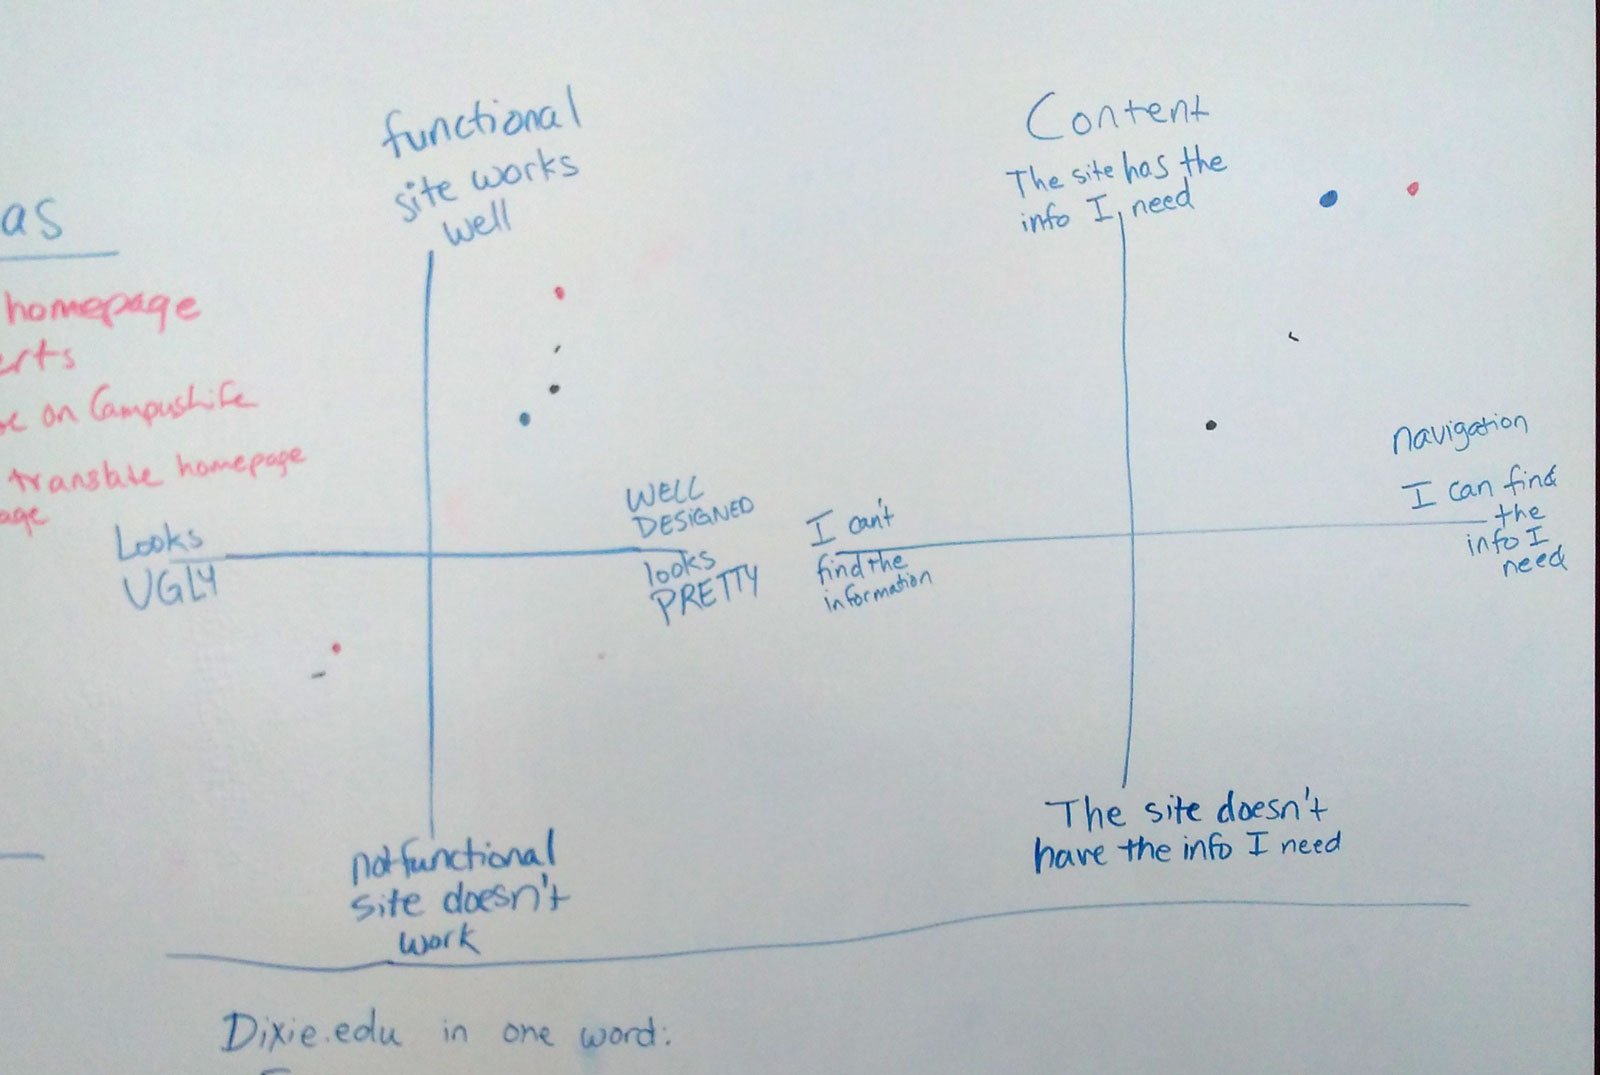 as
homepage
erts
on CampusLife
translate homepage
age
functional
site works
well
Looks
UGLY
WELL
DESIGNED
looks
PRETTY
notfunctional
site doesn't
work
Content
The site has the
info I need
I can't
find the
information
navigation
I can find
the
info I
need
The site doesn't
have the info I need
Dixie.edu in one word: